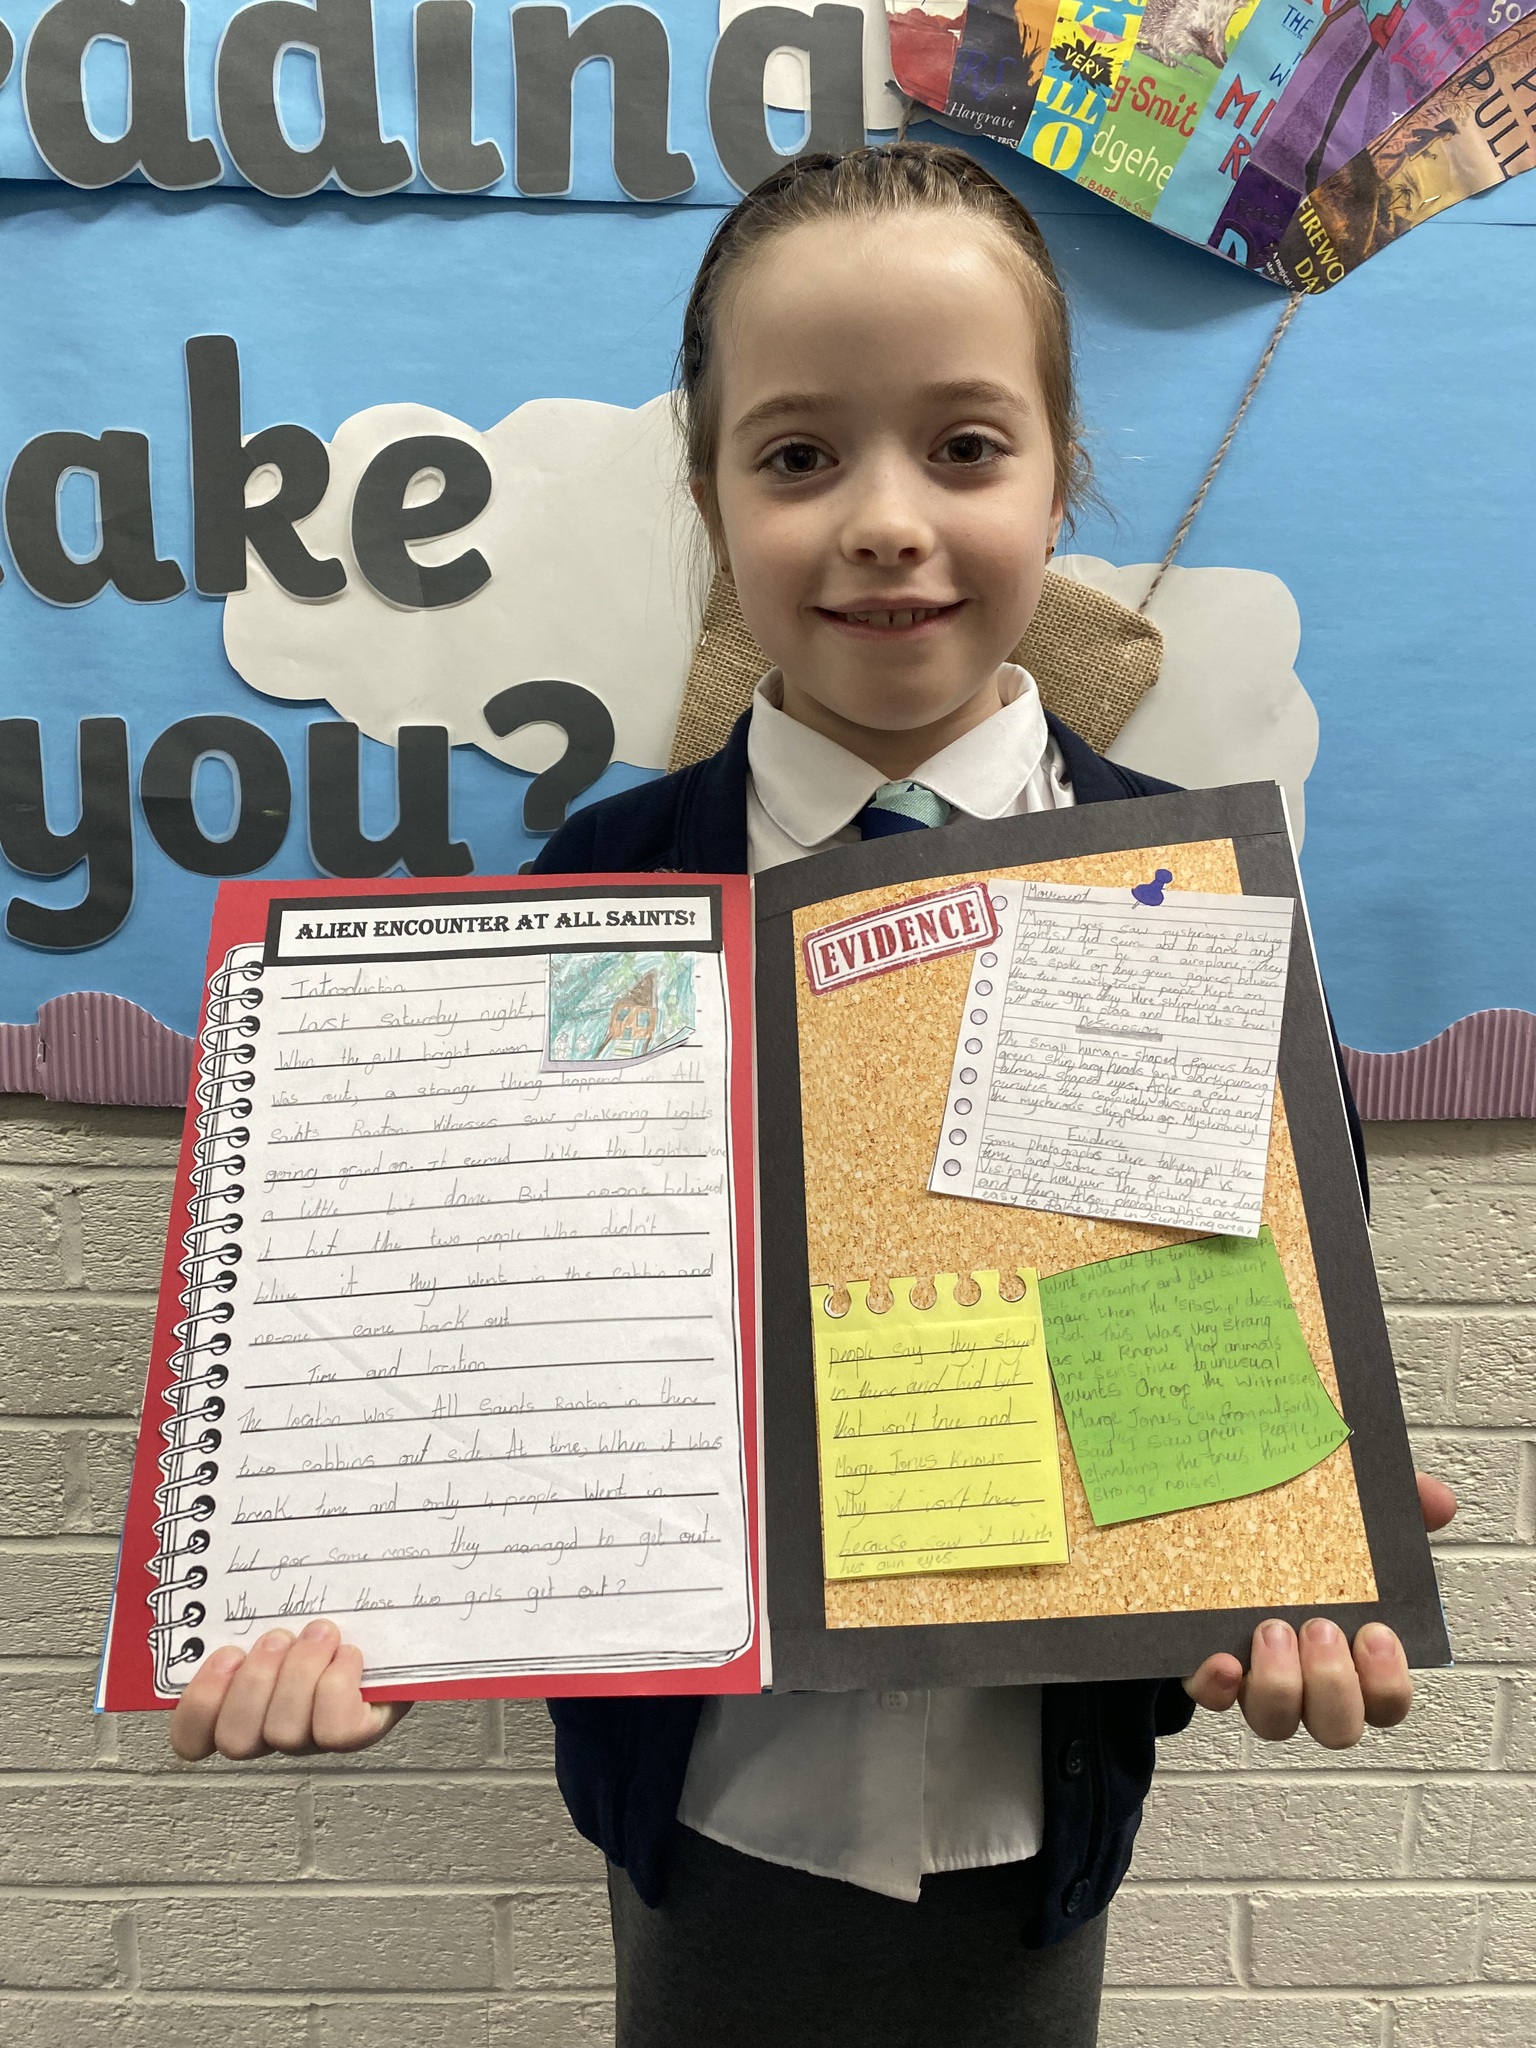 ading
ake
you?
Hargrave
VERY
g-Smit
dgehe
of BABE the Sheep
THE
MI
R
FIREWO
DA
PULL
50
ALIEN ENCOUNTER AT ALL SAINTS!
Introducton
Last Saturday night,
When the full bright moon
was out, a strange thing happend in All
Saints Ranton. Witnesses saw flickering lights
going on. It seemed like the lights were
a little bit dome. But no-one belived
it but the two people who didn't
belive it they went in the cabbin and
no-one came back out
Time and location
The location was All Saints Ranton in there
two cabbins out side. At time, When it was
break time and only 4 people went in
but for some reason they managed to get out.
Why didn't those two girls get out?
EVIDENCE
Movement
Marge Jones saw mysterious flashing
lights! did seem act to dome and
to low for be a airoplane. They
also spoke of tiny green figures between
the two people kept on
saying again they were shborting around
all over the place and that was true!
Description
The small human-shaped figures had
green skin, long heads and dark,pursing
almond-shaped eyes. After a few
minutes they completely dissapiring and
the mysterious ship flew of Mysteriously!
Evidence
Some photographs were taken all the
time and some sort of light is
visitable, however the picture are dark
and blury. Also photographs are
easy to fake Dogs in surinding area,
went at the time of the
encounter and fell silent
again when the 'spaship' dissa
This was very strang
as we know that animals
are sensitive to unusual
events. One of the witnesses,
Marge Jones (34 from mulford)
Said "I saw green people
climbing the trees there were
strange noises!
people say they stayed
in there and hid but
that isn't true and
Marge Jones knows
Why it isn't true
because saw it with
his own eyes.